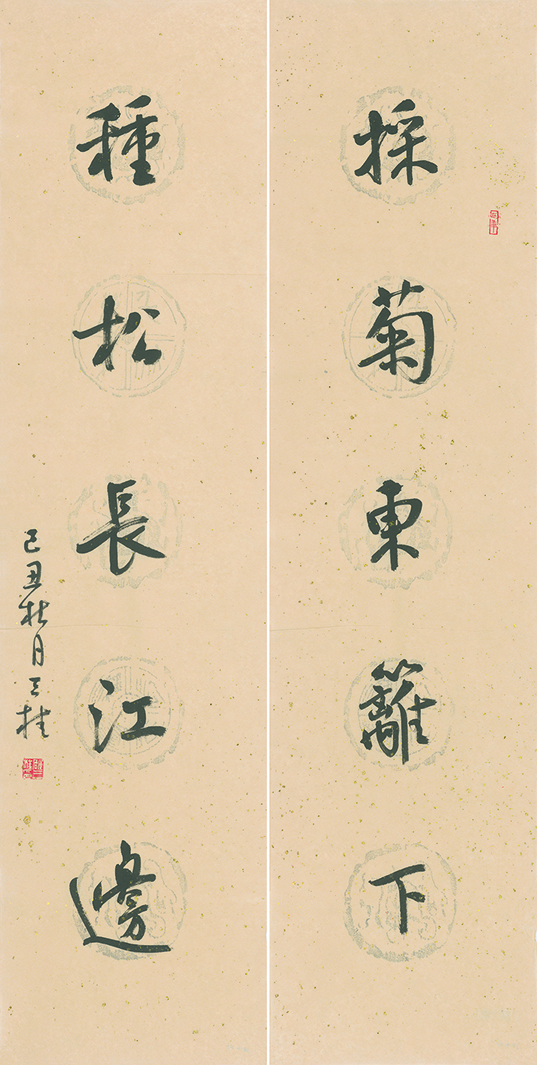 採菊東籬下
種松長江邊
己丑秋月三桂